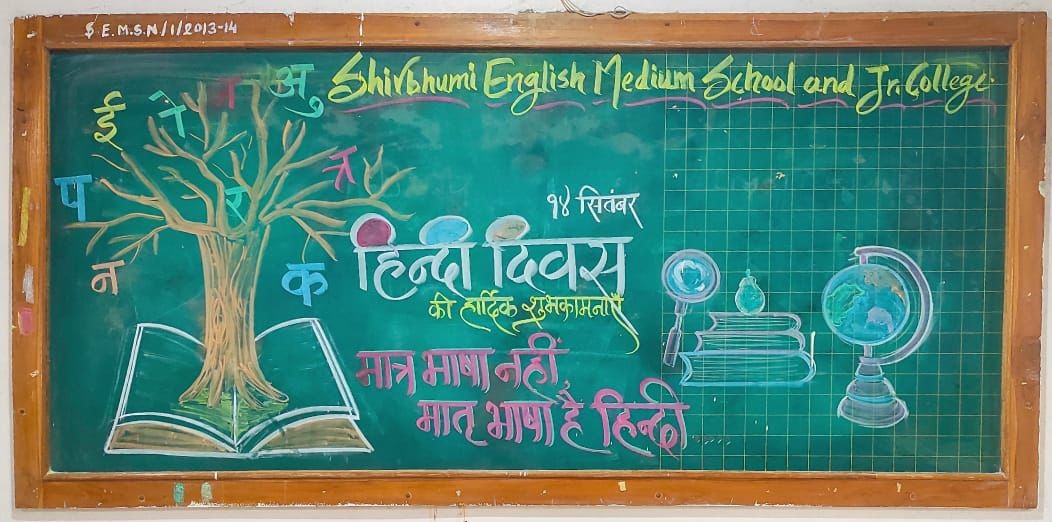 S.E.M.S.N/1/2013-14
Shivbhumi English Medium School and Jr. College.
ई
ने
न
अु
प
र
त्र
न
क
१४ सितंबर
हिन्दी दिवस
की हार्दिक शुभकामनाएँ
मात्र भाषा नहीं,
मातृ भाषा है हिन्दी.....